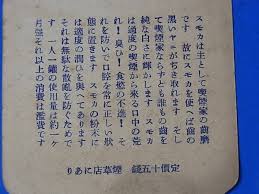 スモカは主として喫煙家の歯磨
です 故にスモカを使へば歯の
黒いヤニがちぎれ取れます そし
て喫煙家ならずとも誰もの歯を
純な白さに輝かします スモカ
は過度の喫煙から来る口中の荒
れ！臭ひ！食慾の不進！そ
れを防いで口腔を常に正しい状
態に置きます スモカの粉末に
は適度の潤ひを與へてあります
それは無駄な散亂を防ぐためで
す 一人一罐の使用量は約一ケ
月强それ以上の消費は濫費です
定價十五錢 煙草店にあり